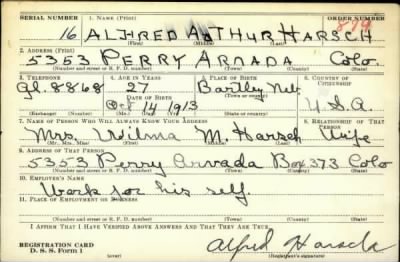 SERIAL NUMBER 1. NAME (Print) ORDER NUMBER
16 ALFRED ARTHUR HARSCH 879
(First) (Middle) (Last)
2. ADDRESS (Print)
5353 PERRY ARVADA Colo.
(Number and street or R. F. D. number) (Town) (County) (State)
3. TELEPHONE 4. AGE IN YEARS 5. PLACE OF BIRTH 6. COUNTRY OF CITIZENSHIP
Gl. 8868 27 Bartley Neb.
DATE OF BIRTH (Town or county)
Oct 14 1913 U.S.A.
(Exchange) (Number) (Mo.) (Day) (Yr.) (State or country)
7. NAME OF PERSON WHO WILL ALWAYS KNOW YOUR ADDRESS 8. RELATIONSHIP OF THAT PERSON
Mrs. Wilma M. Harsch Wife
(Mr., Mrs., Miss) (First) (Middle) (Last)
9. ADDRESS OF THAT PERSON
5353 Perry Arvada Box 373 Colo
(Number and street or R. F. D. number) (Town) (County) (State)
10. EMPLOYER'S NAME
Work for his self.
11. PLACE OF EMPLOYMENT OR BUSINESS
(Number and street or R. F. D. number) (Town) (County) (State)
I AFFIRM THAT I HAVE VERIFIED ABOVE ANSWERS AND THAT THEY ARE TRUE.
REGISTRATION CARD
D. S. S. Form 1 Alfred Harsch
(Registrant's signature)